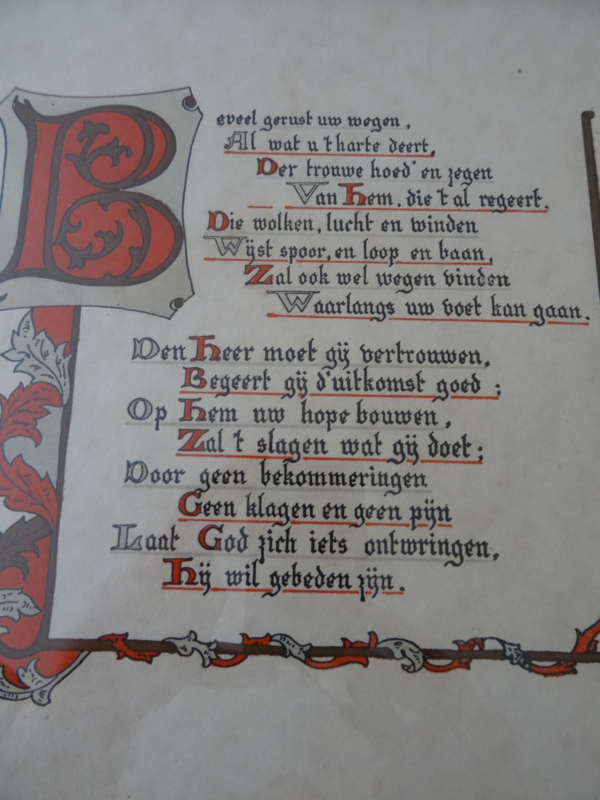 Beveel gerust uw wegen,
Al wat u 't harte deert,
Der trouwe hoed' en zegen
Van Hem, die 't al regeert.
Die wolken, lucht en winden
Wijst spoor, en loop en baan,
Zal ook wel wegen vinden
Waarlangs uw voet kan gaan.
Den Heer moet gij vertrouwen,
Begeert gij d'uitkomst goed;
Op Hem uw hope bouwen,
Zal 't slagen wat gij doet;
Door geen bekommeringen
Geen klagen en geen pijn
Laat God zich iets ontwringen,
Hij wil gebeden zijn.